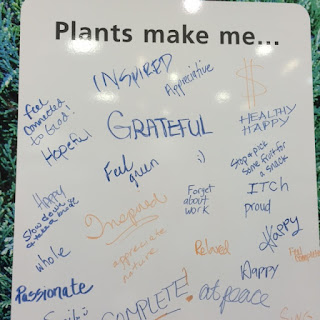 Plants make me...
INSPIRED
Appreciative
$
Feel
Connected
to God!
Hopeful
GRATEFUL
HEALTHY
HAPPY
Feel
green
;)
Stop & pick
some fruit for
a snack
HAPPY
Slow down
whole
Inspired
appreciate
nature
Forget
about
work
ITCH
proud
Relaxed
Happy
Happy
Passionate
COMPLETE!
at peace